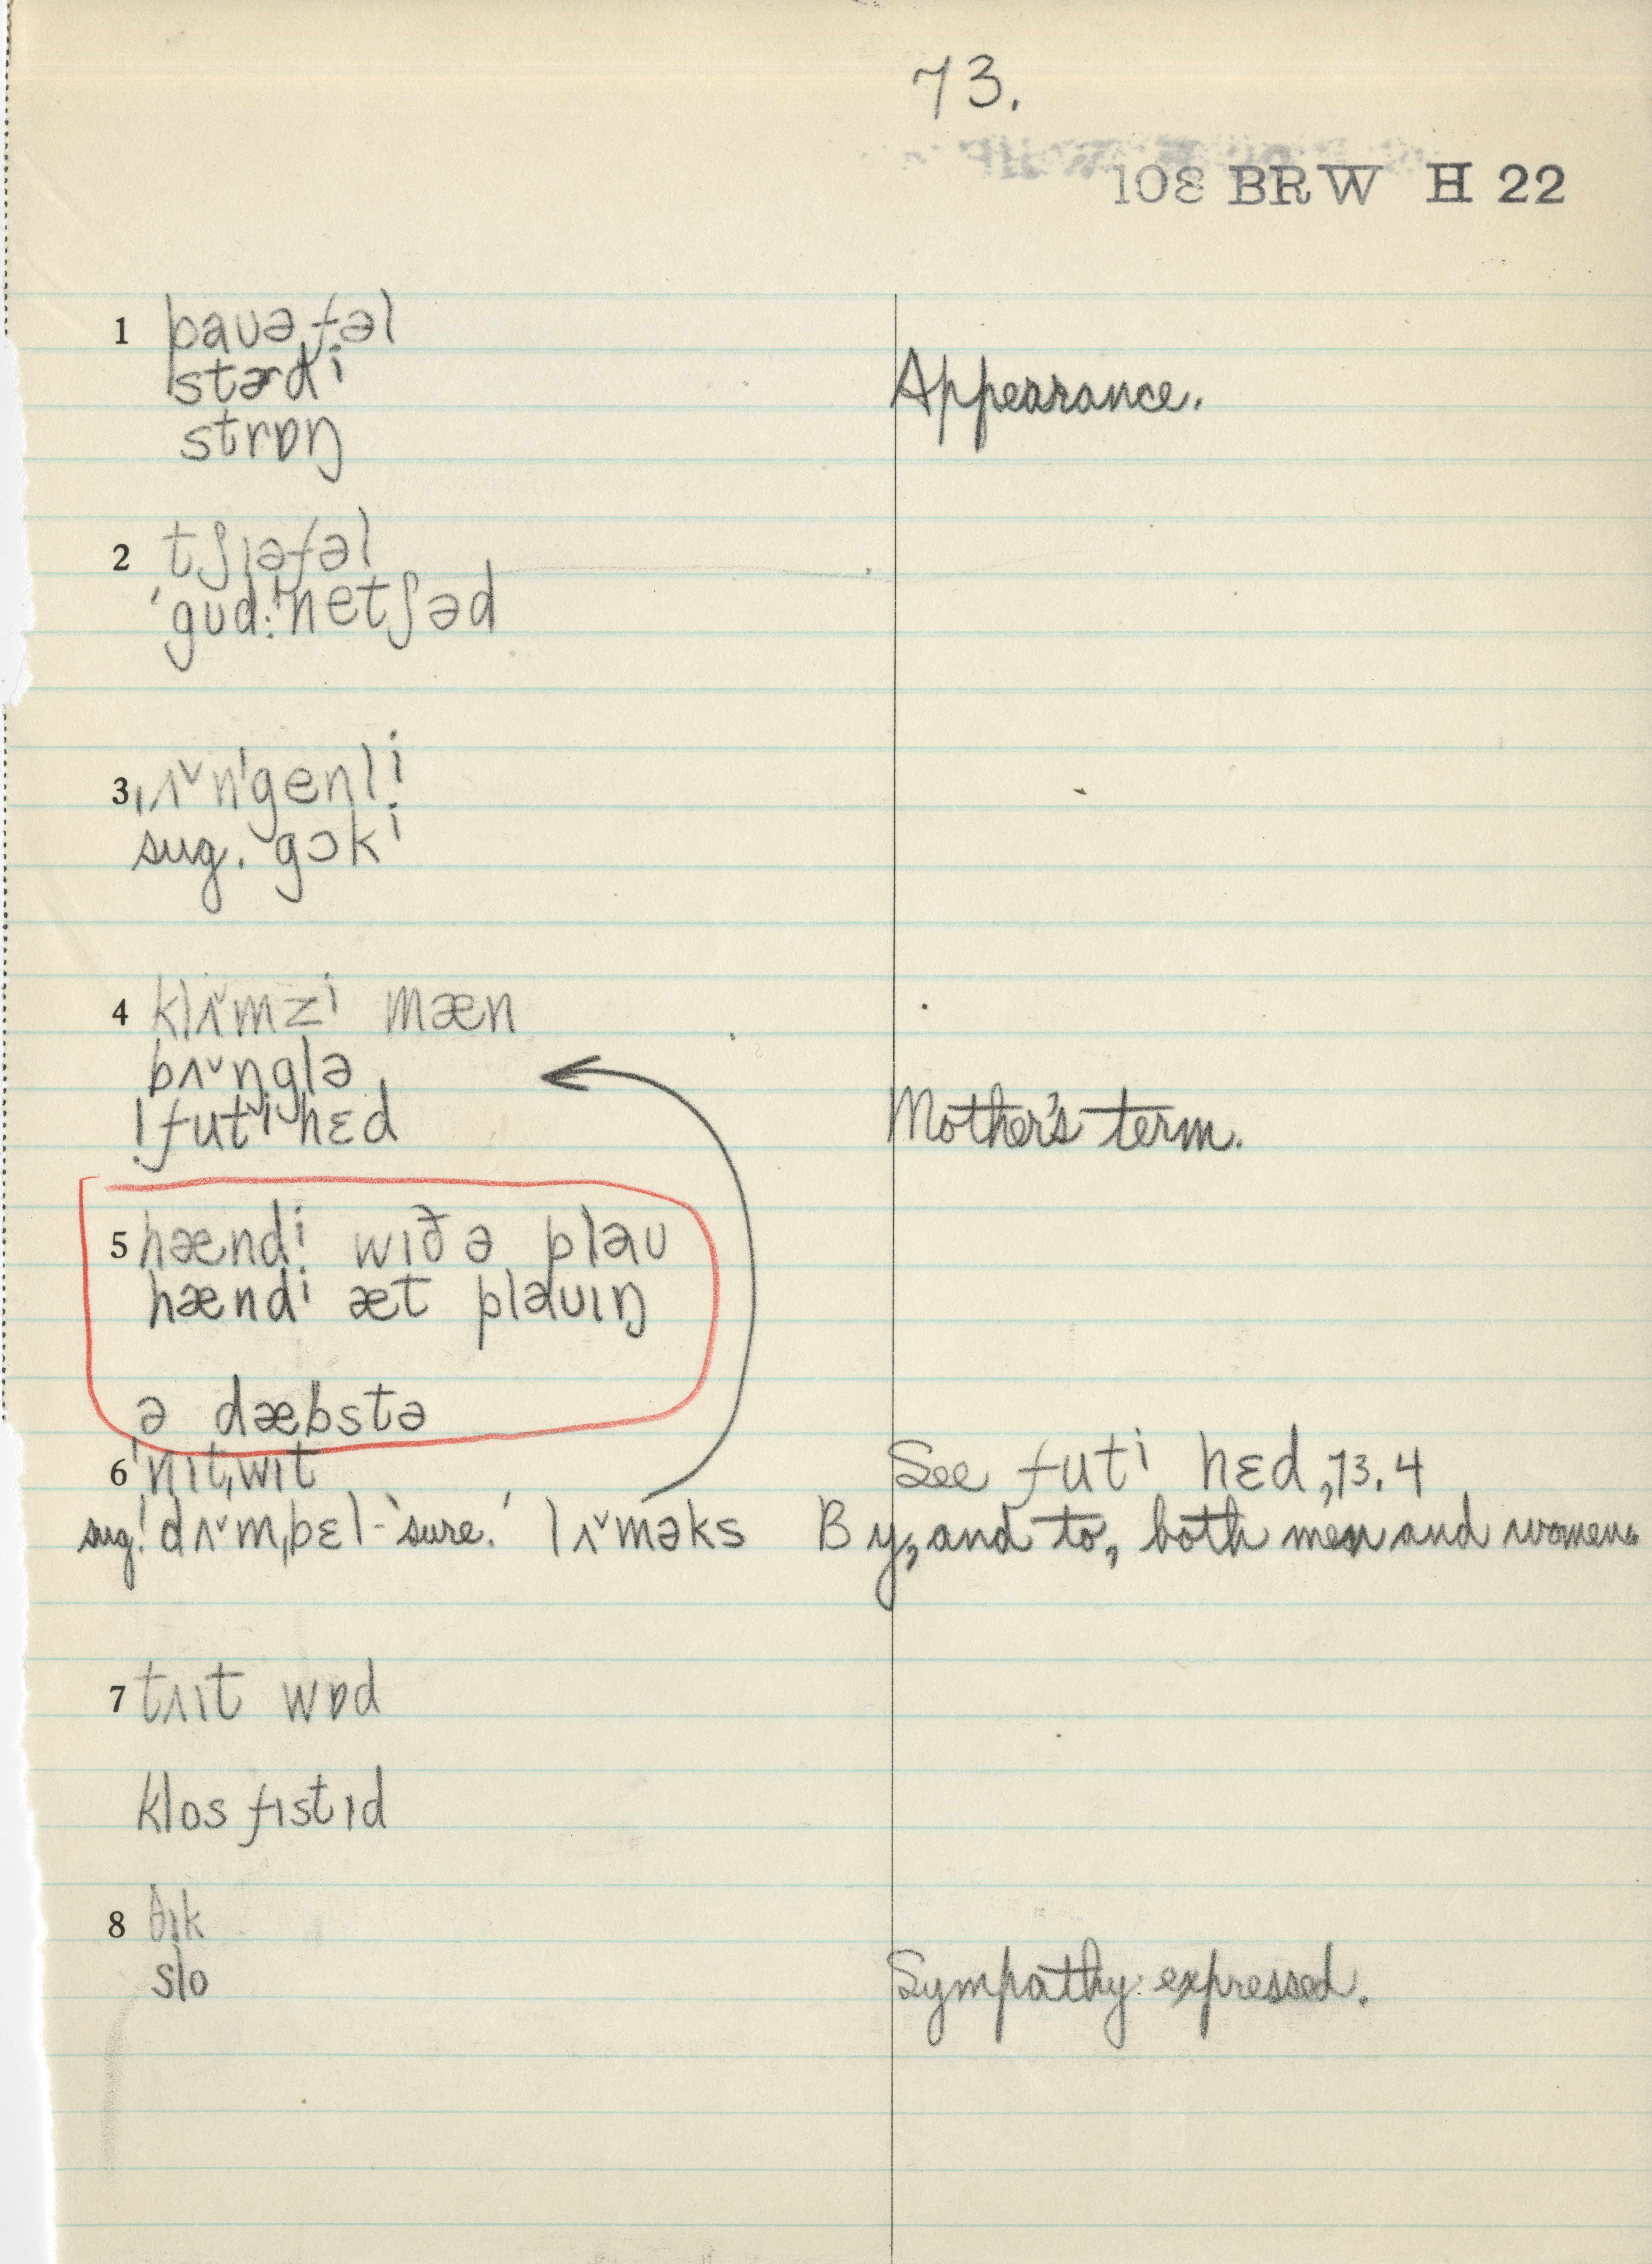 73.
108 BRW H 22
1 pauəfəl
stərdi Appearance.
strɒŋ
2 tʃɪəfəl
'gud:ˈnetʃəd
3 ˌʌ˅nˈgenli
sug. gɔki
4 klʌ˅mzi mæn
bʌ˅ŋglə
ˈfutiˌhɛd Mother's term.
5 hændi wɪð ə plau
hændi æt plauɪŋ
ə dæbstə
6 ˈnɪtˌwɪt See futi hɛd, 73.4
sug. ˈdʌ˅mˌbɛl - 'sure.' lʌ˅məks By, and to, both men and women.
7 tʌɪt wɒd
klos fɪstɪd
8 ðɪk
slo Sympathy expressed.